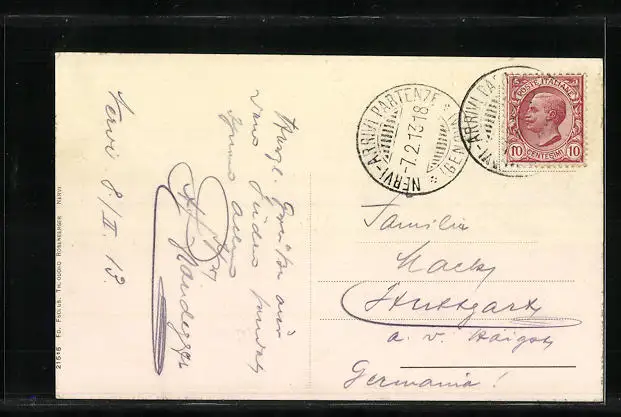 Nervi 8/II. 13.
Herzl. Grüße aus
dem Süden sendet
Ihnen allen
Familie
Mack
Stuttgart
a. v. Haigst
Germania!
NERVI-ARRIVI PARTENZE
7.2.13 18
(GENOVA)
NERVI-ARRIVI PA
POSTE ITALIANE
10 CENTESIMI 10
21546 ED. ESCLUS. THEODORO ROSENBERGER NERVI